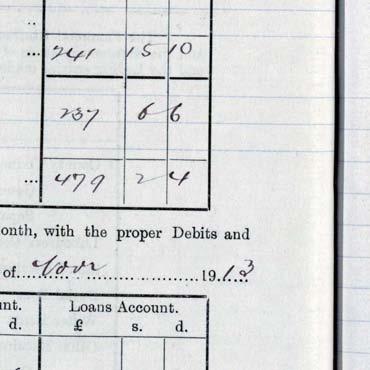 ..
... 241 15 10
237 6 6
... 479 2 4
onth, with the proper Debits and
of....Novr..................1913
nt. Loans Account.
d. £ s. d.